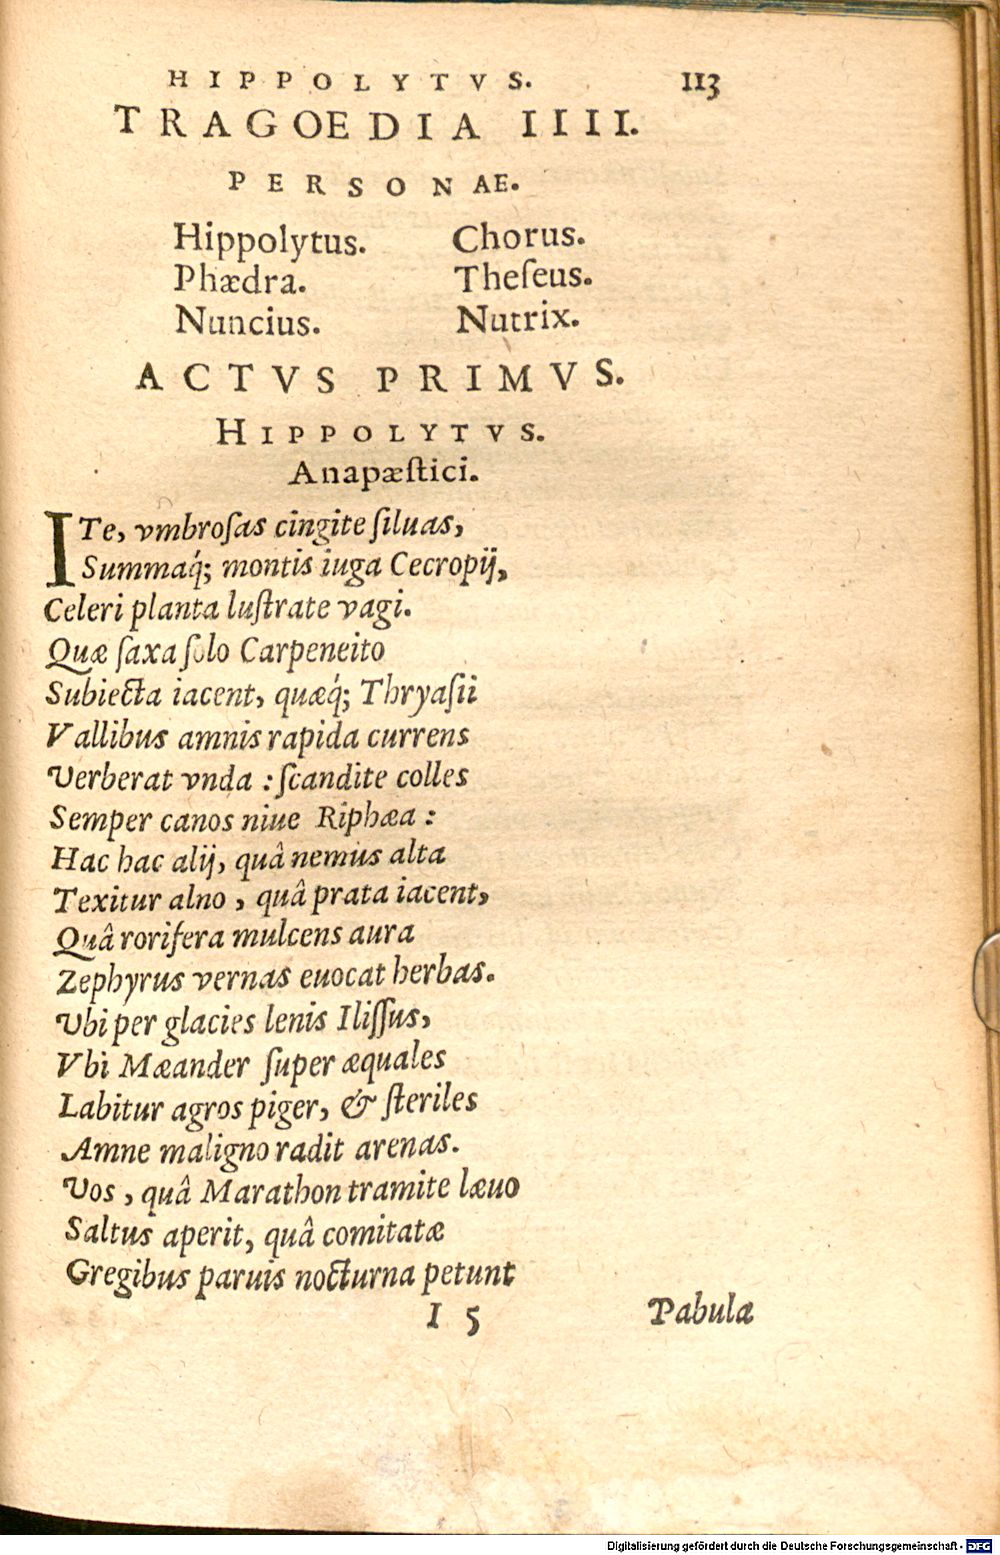 HIPPOLYTVS. 113
TRAGOEDIA IIII.
PERSONAE.
Hippolytus. Chorus.
Phædra. Theſeus.
Nuncius. Nutrix.
ACTVS PRIMVS.
HIPPOLYTVS.
Anapæſtici.
ITe, vmbroſas cingite ſiluas,
Summaq́; montis iuga Cecropij,
Celeri planta luſtrate vagi.
Quæ ſaxa ſolo Carpeneito
Subiecta iacent, quæq́; Thryaſii
Vallibus amnis rapida currens
Verberat vnda : ſcandite colles
Semper canos niue Riphæa :
Hac hac alij, quâ nemus alta
Texitur alno , quâ prata iacent,
Quâ rorifera mulcens aura
Zephyrus vernas euocat herbas.
Vbi per glacies lenis Iliſſus,
Vbi Mæander ſuper æquales
Labitur agros piger, & ſteriles
Amne maligno radit arenas.
Vos , quâ Marathon tramite læuo
Saltus aperit, quâ comitatæ
Gregibus paruis nocturna petunt
I 5 Pabula
Digitalisierung gefördert durch die Deutsche Forschungsgemeinschaft - DFG